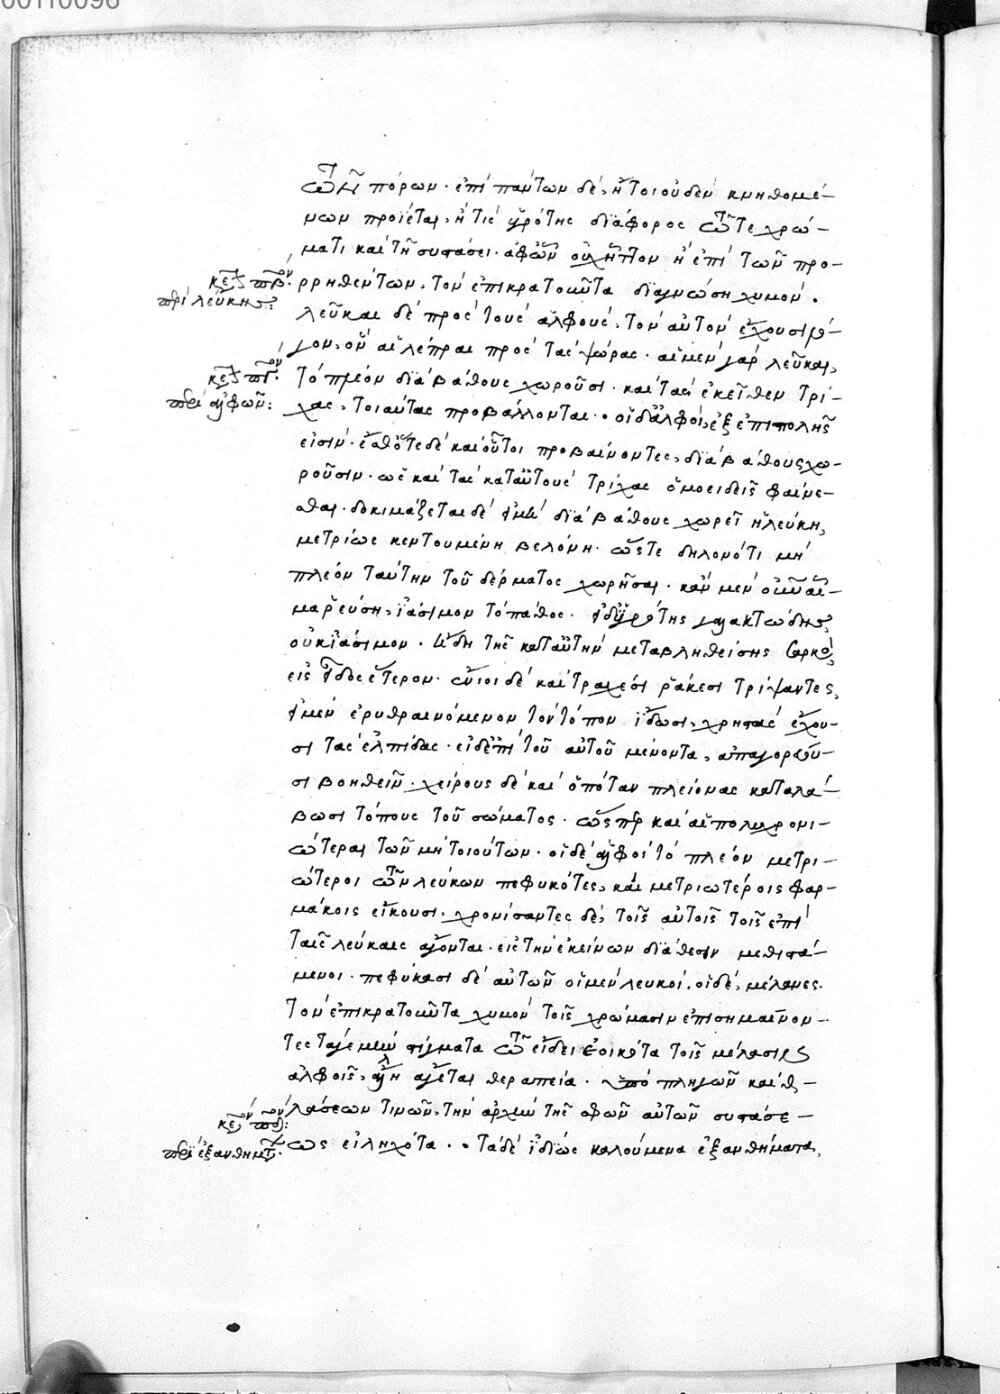 00110096
τῶν πόρων. ἐπὶ πάντων δὲ, ἤτοι οὐδὲν κνηθομέ-
νων προΐεται, ἢ τὶς ὑγρότης διάφορος τῶ τε χρώ-
ματι καὶ τῆ συστάσει. ἀφ' ὧν οὐχ ἧττον ἢ ἐπὶ τῶν προ-
ρρηθέντων, τὸν ἐπικρατοῦντα διαγνώση χυμόν.
περὶ λεύκης:
λεῦκαι δὲ πρὸς τοὺς ἀλφοὺς, τὸν αὐτὸν ἔχουσι λό-
γον, ὃν αἱ λέπραι πρὸς τὰς ψώρας. αἱ μὲν γὰρ λεῦκαι,
τὸ πλέον διὰ βάθους χωροῦσι. καὶ τὰς ἐκεῖθεν τρί-
περὶ ἀλφῶν:
χας, τοιαύτας προβάλλονται. οἱ δ' ἀλφοὶ, ἐξ ἐπιπολῆς
εἰσίν. ἔσθ' ὅτε δὲ καὶ οὗτοι προβαίνοντες, διὰ βάθους χω-
ροῦσιν. ὡς καὶ τὰς κατ' αὐτοὺς τρίχας ὁμοειδεῖς φαίνε-
σθαι. δοκιμάζεται δὲ διὰ βάθους χωρεῖ ἡ λεύκη,
μετρίως κεντουμένη βελόνη. ὥστε δηλονότι μὴ
πλέον ταύτην τοῦ δέρματος χωρῆσαι. κἂν μὲν οὖν αἷ-
μα ῥεύση, ἰάσιμον τὸ πάθος. εἰ δ' ὑγρότης γαλακτώδης,
οὐκ ἰάσιμον. ἤδη τῆς κατ' αὐτὴν μεταβληθείσης σαρκὸς,
εἰς εἶδος ἕτερον. ἔνιοι δὲ καὶ τραχέσι ῥάκεσι τρίψαντες,
εἰ μὲν ἐρυθραινόμενον τὸν τόπον ἴδωσι, χρηστὰς ἔχου-
σι τὰς ἐλπίδας. εἰ δ' ἐπὶ τοῦ αὐτοῦ μένοντα, ἀπαγορεύου-
σι βοηθεῖν. χείρους δὲ καὶ ὁπόταν πλείονας καταλά-
βωσι τόπους τοῦ σώματος. ὥσπερ καὶ αἱ πολυχρονι-
ώτεραι τῶν μὴ τοιούτων. οἱ δὲ ἀλφοὶ τὸ πλέον μετρι-
ώτεροι τῶν λευκῶν πεφυκότες, καὶ μετριωτέροις φαρ-
μάκοις εἴκουσι. χρονίσαντες δὲ, τοῖς αὐτοῖς τοῖς ἐπὶ
ταῖς λεύκαις ἄγονται. εἰς τὴν ἐκείνων διάθεσιν μεθιστά-
μενοι. πεφύκασι δὲ αὐτῶν οἱ μὲν λευκοὶ. οἱ δὲ, μέλανες.
τὸν ἐπικρατοῦντα χυμὸν τοῖς χρώμασιν ἐπισημαίνον-
τες τὰ στίγματα τῶ εἴδει ἐοικότα τοῖς μέλασιν
ἀλφοῖς, ἄλλη ἄγεται θεραπεία. ὑπὸ πληγῶν καὶ θ-
λάσεων τινῶν, τὴν ἀρχὴν τῆς σφῶν αὐτῶν συστάσε-
περὶ ἐξανθημάτων:
ως εἰληχότα. τὰ δὲ ἰδίως καλούμενα ἐξανθήματα,